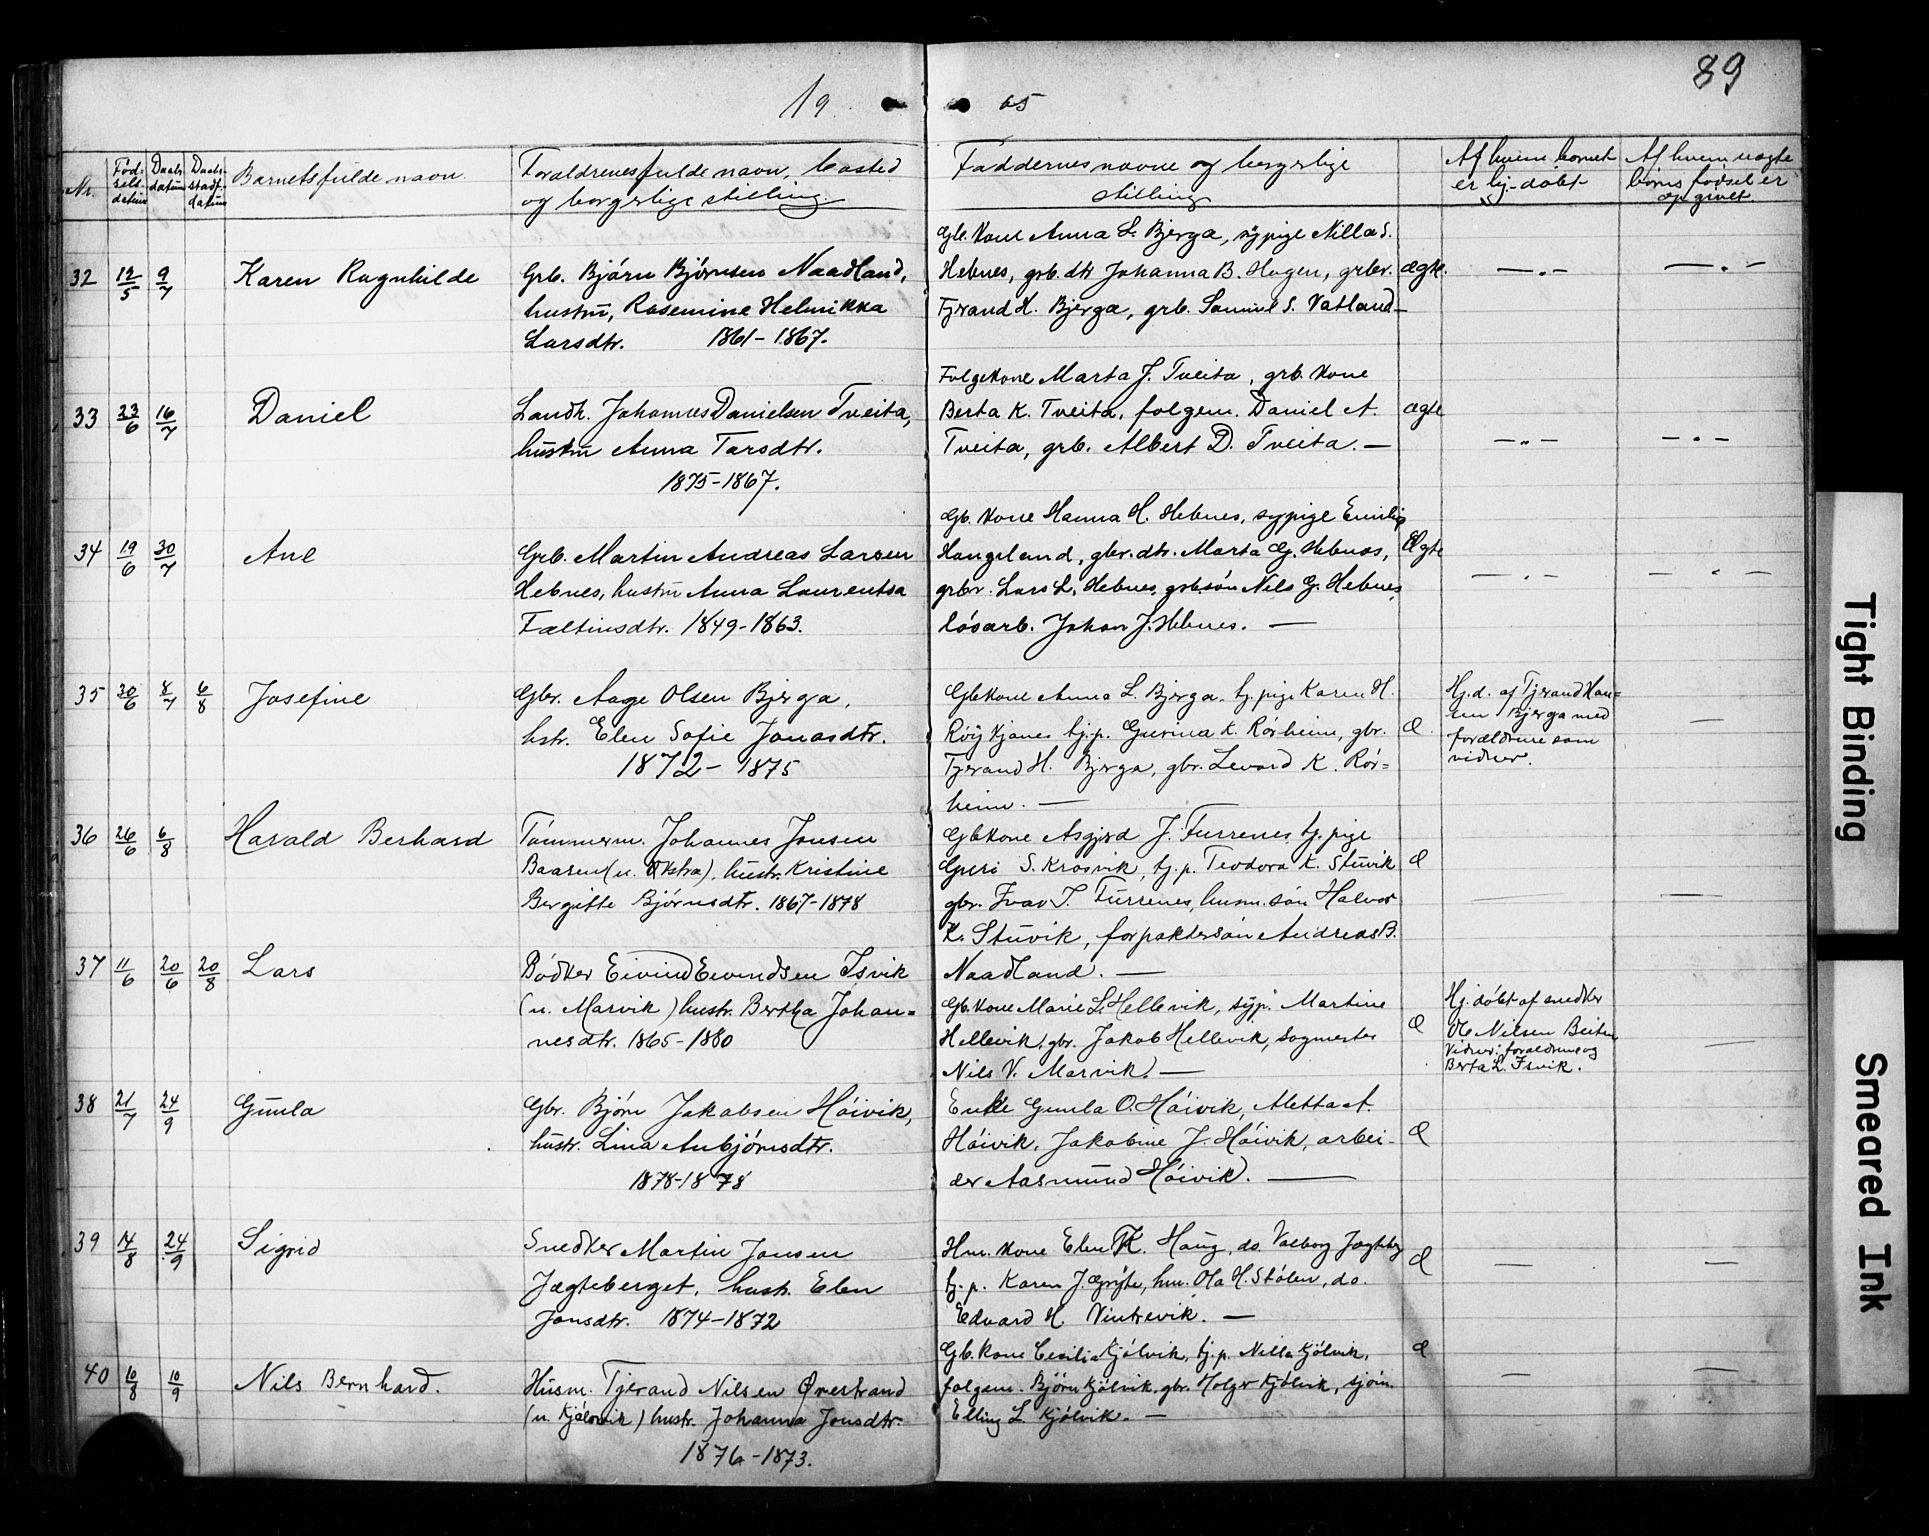 89
19 05
Nr. Fød- sels- datum Daabs datum Daabs- stadf. datum Barnets fulde navn. Forældrenes fulde navn, bosted
og borgerlige stilling.
Faddernes navne og borgerlige
stilling
Af hvem barnet
er hj.-døbt
Af hvem uægte
børns fødsel er
opgivet.
32 12/5 9/7 Karen Ragnhilde
Grb. Bjørn Bjørnsen Naadland,
hustru, Rasmine Helmikka
Larsdtr. 1861-1867.
Gb. kone Anna L. Bjerga, sypige Nilla S.
Hebnes, grb. dtr Johanna B. Hagen, grbr. ægte. —„— —„—
Tjerand H. Bjerga, grb. Samuel S. Vatland —
33 23/6 16/7 Daniel
Landh. Johannes Danielsen Tveita,
hustru Anna Tarsdtr.
1875-1867.
Folgekone Marta J. Tveita, grb. kone
Berta K. Tveita, folgem. Daniel A. ægte
Tveita, grb. Albert D. Tveita. — —„— —„—
34 19/6 30/7 Ane
Grb. Martin Andreas Larsen
Hebnes, hustru Anna Laurentsa
Fæltinsdtr. 1849-1863.
Gb. kone Hanna H. Hebnes, sypige Emilie
Haugeland, gbr. dtr. Marta G. Hebnes, Ægte
grbr. Lars L. Hebnes, grb.søn Nils G. Hebnes, —„— —„—
løsarb. Johan J. Hebnes. —
35 30/6 8/7 6/8 Josefine
Gbr. Aage Olsen Bjerga,
hstr. Elen Sofie Jonasdtr.
1872 - 1875
Gbkone Anna L. Bjerga, tj. pige Karen H.
Røykjanes tj.p. Gurina K. Rørheim, gbr. Æ.
Tjerand H. Bjerga, gbr. Levard K. Rør=
heim. —
Hj.d. af Tjerand Han=
sen Bjerga med
forældrene som
vidner.
—
36 26/6 6/8 Harald Berhard
Tømmerm. Johannes Jonsen
Baasen (u. Økstra), hustr. Kristine
Bergitte Bjørnsdtr. 1867-1878
Gbkone Asgjerd J. Furrenes, tj. pige
Guri S. Krosvik, tj.p. Teodora K. Stuvik Æ
gbr. Ivar T. Furrenes, husm. søn Halvor — —
K. Stuvik, forpaktersøn Andreas B.
Naadland. —
37 11/6 20/6 20/8 Lars
Bødker Eivind Eivindsen Isvik
(u. Marvik) hustr. Bertha Johan=
nesdtr. 1865-1880
Gb. kone Marie L. Hellevik, syp. Martine
Hellevik, gbr. Jakob Hellevik, sogmester Æ
Nils V. Marvik. —
Hj. døbt af snedker
Ole Nilsen Beiten
Vidner: forældrene og
Berta L. Isvik.
—
38 21/7 24/9 Gunla
Gbr. Bjørn Jakobsen Høivik,
hustr. Lina Aubjørnsdtr.
1878-1878
Enke Gunla O. Høivik, Metta A.
Høivik, Jakobine J. Høivik, arbei- Æ
der Aasmund Høivik. —
39 14/8 24/9 Sigrid
Snedker Martin Jonsen
Jægteberget, hustr. Elen
Jonsdtr. 1874-1872
Hm. kone Elen K. Haug, do. Valborg Jægtbg
tj.p. Karen J. Grýte, hm. Ola H. Stølen, do. Æ — —
Edvard H. Vintrevik. —
40 10/8 10/9 Nils Bernhard.
Husm. Tjerand Nilsen Øvestrand
(u. Kjølevik) hustr. Johanna Jonsdtr.
1876-1873.
Gb. kone Cecilia Kjølvik, tj.p. Nilla Kjølvik, Æ
folgem. Bjørn Kjølvik, gbr. Holger Kjølvik, sjøm. — —
Elling L. Kjølvik. —
Tight Binding
Smeared Ink